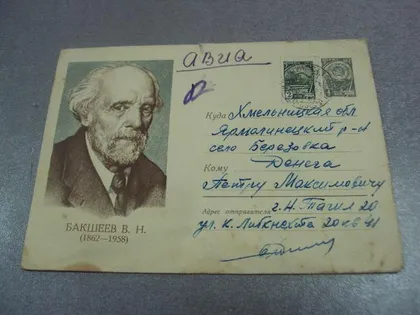 АВИА
Куда Хмельницкая обл
Ярмолинецкий р-н
село Березовка
Кому Денега
Петру Максимовичу
Адрес отправителя г. Н. Тагил 20
ул. К. Либкнехта 20 кв 41
БАКШЕЕВ В. Н.
(1862—1958)